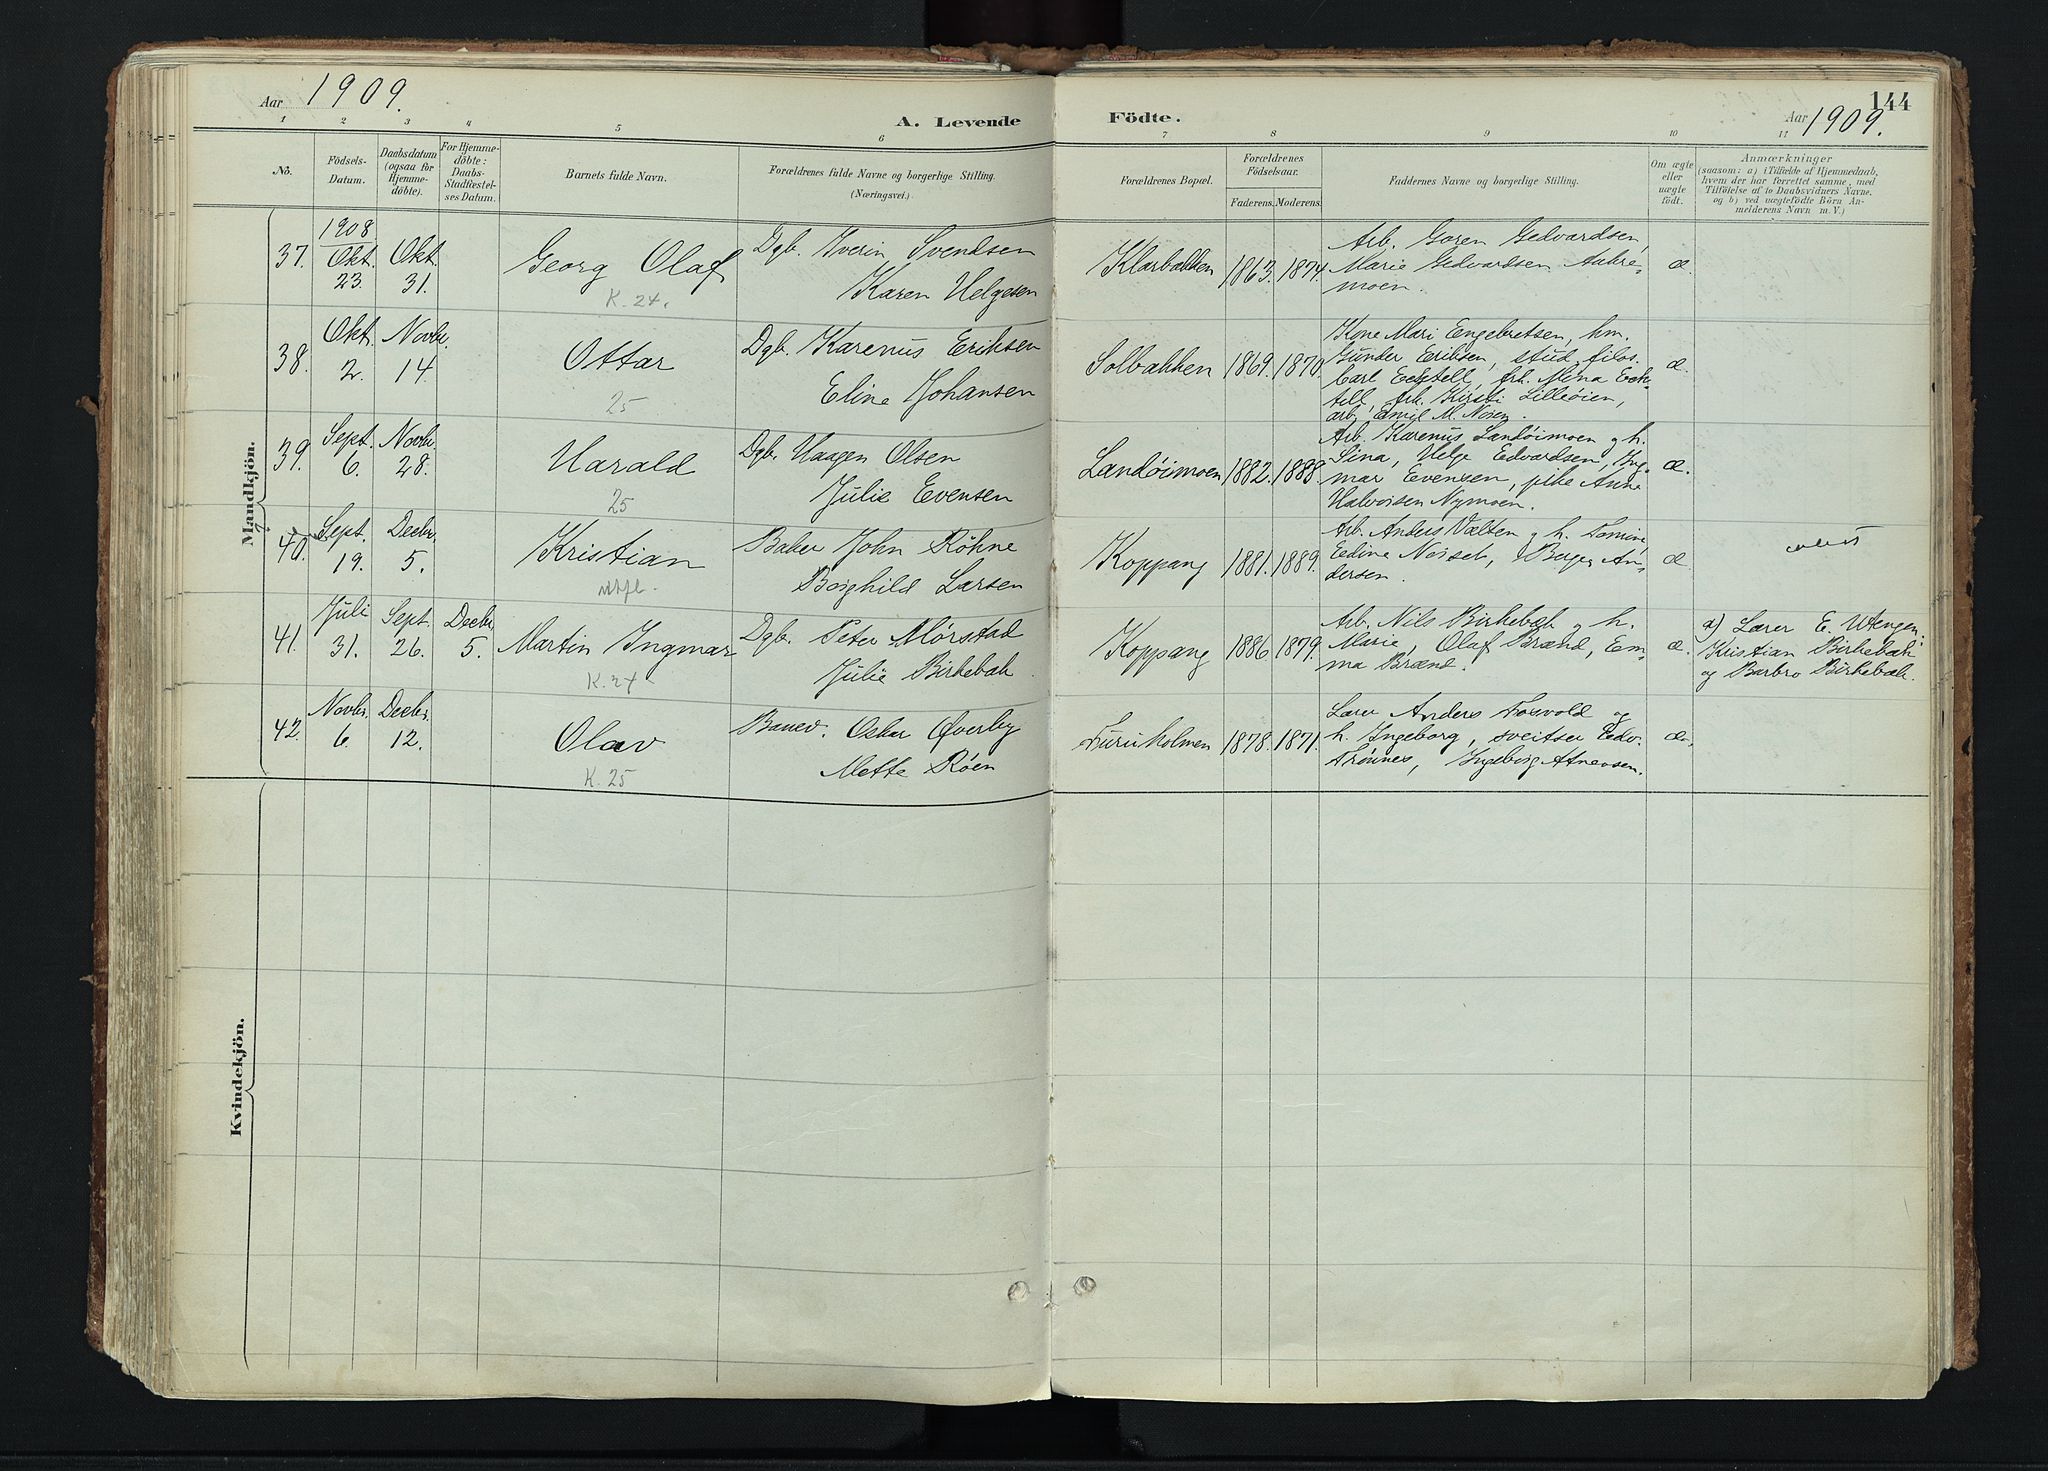 Aar 1909.
A. Levende Födte.
144
Aar 1909.
1 2 3 4 5 6 7 8 9 10 11
No.
Födsels-Datum.
Daabsdatum (ogsaa for Hjemme-döbte).
For Hjemme-döbte: Daabs-Stadfæstel-ses Datum.
Barnets fulde Navn.
Forældrenes fulde Navne og borgerlige Stilling.
(Næringsvei.)
Forældrenes Bopæl.
Forældrenes Födselsaar.
Faderens. Moderens.
Faddernes Navne og borgerlige Stilling.
Om ægte eller uægte födt.
Anmærkninger
(saasom: a) i Tilfælde af Hjemmedaab,
hvem der har forrettet samme, med
Tilföielse af to Daabsvidners Navne,
og b) ved uægtefödte Börn An-
melderens Navn m. V.)
Mandkjön.
37. 1908 Okt. 23. Okt. 31. Georg Olaf K. 24.
Dgb. Iverin Svendsen
Karen Helgesen
Klarbakken 1863. 1874.
Arb. Goren Gedvardsen,
Marie Gedvardsen Aakre-
moen.
æ
38. Okt. 2. Novbr. 14. Ottar 25
Dgb. Karenus Eriksen
Eline Johansen
Solbakken 1869. 1870.
Kone Mari Engebretsen, hm.
Gunder Eriksen, stud. filos.
Carl Ecktell, frk. Mina Eck-
tell, frk. Kirsti Lilleöien,
arb. Emil M. Noren.
æ.
39. Sept. 6. Novbr. 28. Harald 25
Dgb. Haagen Olsen
Julie Evensen
Landöimoen 1882. 1888.
Arb. Karenus Landöimoen og h.
Sina, Helge Edvardsen, Ing-
mar Evensen, pike Anne
Halvorsen Nymoen.
æ.
40. Sept. 19. Decbr. 5. Kristian utfl.
Baker John Röhne
Borghild Larsen
Koppang 1881. 1889.
Arb. Anders Valten og h. Tomine,
Edine Norset, Berger An-
dersen.
æ
41. Juli 31. Sept. 26. Decbr. 5. Martin Ingmar K. 24
Dgb. Peter Mörstad
Julie Birkebæk
Koppang 1886. 1879.
Arb. Nils Birkebæk og h.
Marie, Olaf Brænd, Em-
ma Brænd.
æ.
a) Lærer E. Utengen;
Kristian Birkebæk
og Barbro Birkebæk.
42. Novbr. 6. Decbr. 12. Olav K. 25
Banev. Oskar Øverby
Mette Röen
Furuholmen 1878. 1871.
Lærer Anders Fosvold og
h. Ingeborg, sveitser Edv.
Trönnes, Ingeborg Atneosen.
æ.
Kvindekjön.